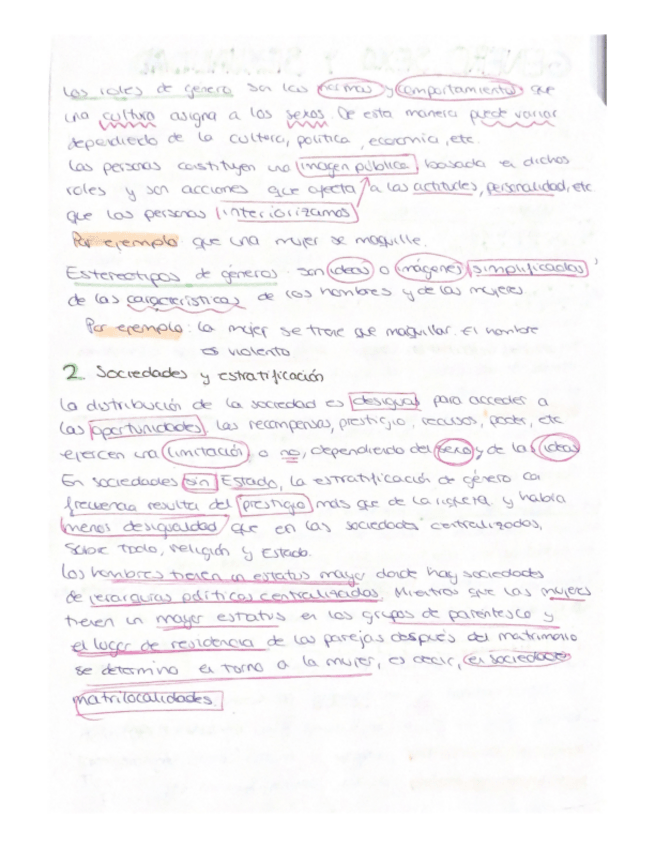 Los roles de género son las normas y comportamientos que
una cultura asigna a los sexos. De esta manera puede variar
dependiendo de la cultura, política, economía, etc.
Las personas constituyen una imagen pública basada en dichos
roles y son acciones que afecta a las actitudes, personalidad, etc
que las personas interiorizamos
Por ejemplo que una mujer se maquille.
Estereotipos de géneros son ideas o imágenes simplificadas
de las características de los hombres y de las mujeres
Por ejemplo: la mujer se tiene que maquillar. El hombre
es violento
2 Sociedades y estratificación
La distribución de la sociedad es desigual para acceder a
las oportunidades, las recompensas, prestigio, recursos, poder, etc
ejercen una limitación o no, dependiendo del sexo y de las ideas
En sociedades sin Estado, la estratificación de género con
frecuencia resulta del prestigio más que de la riqueza y había
menos desigualdad que en las sociedades centralizadas,
sobre todo, religión y Estado.
Los hombres tienen un estatus mayor donde hay sociedades
de jerarquías políticas centralizadas. Mientras que las mujeres
tienen un mayor estatus en los grupos de parentesco y
el lugar de residencia de las parejas después del matrimonio
se determina en torno a la mujer, es decir, en sociedades
matrilocalidades.